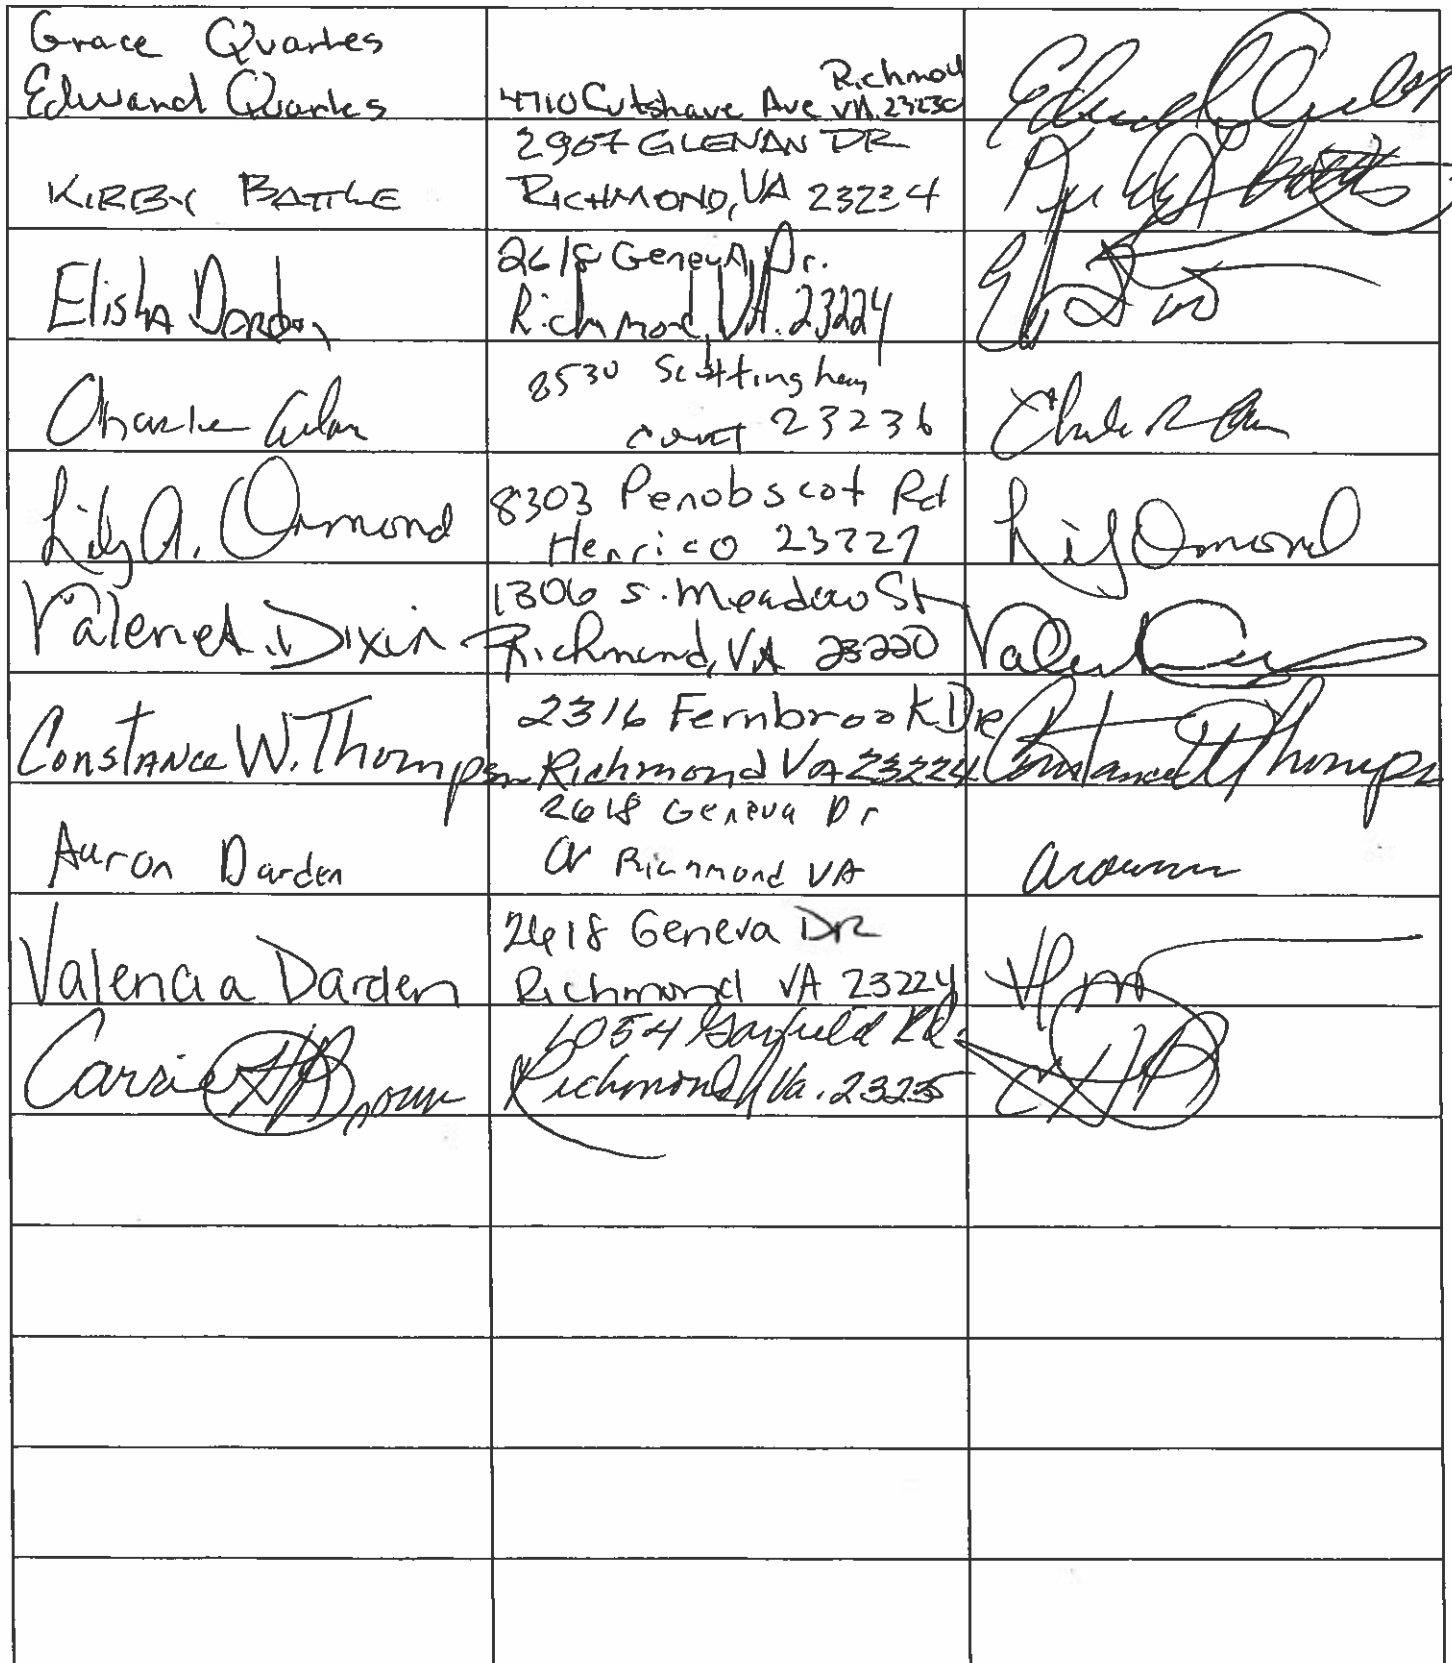 Grace Quarles
Edward Quarles
4710 Cutshaw Ave Richmond VA. 23230
KIRBY BATTLE
2907 GLENAN DR
RICHMOND, VA 23234
Elisha Darden
2618 Geneva Dr.
Richmond, VA. 23224
Charlie
8530
court 23236
Lily A. Ormond
8303 Penobscot Rd
Henrico 23227
Lily Ormond
Dixin
1306 S. Meadow St
Richmond, VA 23220
Constance W. Thompson
2316 Fernbrook Dr
Richmond VA 23224
Constance W Thompson
Aaron Darden
2618 Geneva Dr
Richmond VA
Valencia Darden
2618 Geneva DR
Richmond VA 23224
Carrie Brown
6054 Garfield Rd.
Richmond, Va. 23235